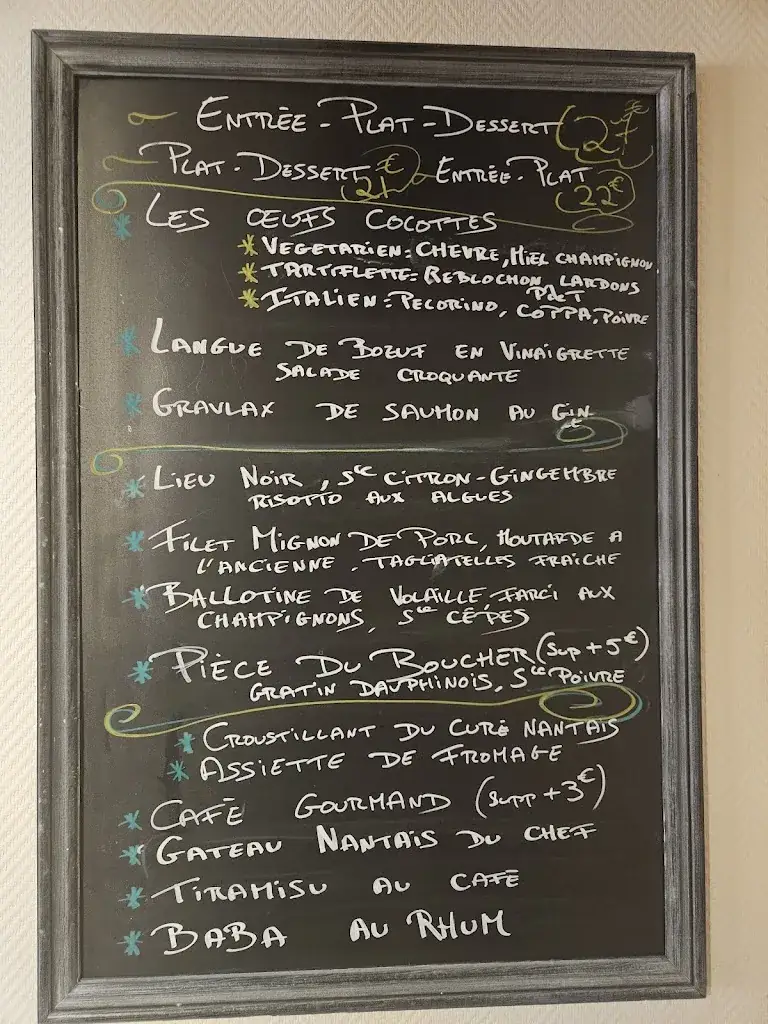 ENTRÉE - PLAT - DESSERT 27€
PLAT - DESSERT 21€ ENTRÉE - PLAT 22€
* LES ŒUFS COCOTTES
* VEGETARIEN = CHEVRE, MIEL CHAMPIGNON
* TARTIFLETTE = REBLOCHON, LARDONS PDT
* ITALIEN = PECORINO, COPPA, POIVRE
* LANGUE DE BOEUF EN VINAIGRETTE
SALADE CROQUANTE
* GRAVLAX DE SAUMON AU GIN
* LIEU NOIR, Sce CITRON-GINGEMBRE
RISOTTO AUX ALGUES
* FILET MIGNON DE PORC, MOUTARDE A
L'ANCIENNE . TAGLIATELLES FRAÎCHE
* BALLOTINE DE VOLAILLE FARCI AUX
CHAMPIGNONS, Sce CÊPES
* PIÈCE DU BOUCHER (Sup + 5€)
GRATIN DAUPHINOIS, Sce POIVRE
* CROUSTILLANT DU CURÉ NANTAIS
* ASSIETTE DE FROMAGE
* CAFÉ GOURMAND (Supp + 3€)
* GATEAU NANTAIS DU CHEF
* TIRAMISU AU CAFÉ
* BABA AU RHUM